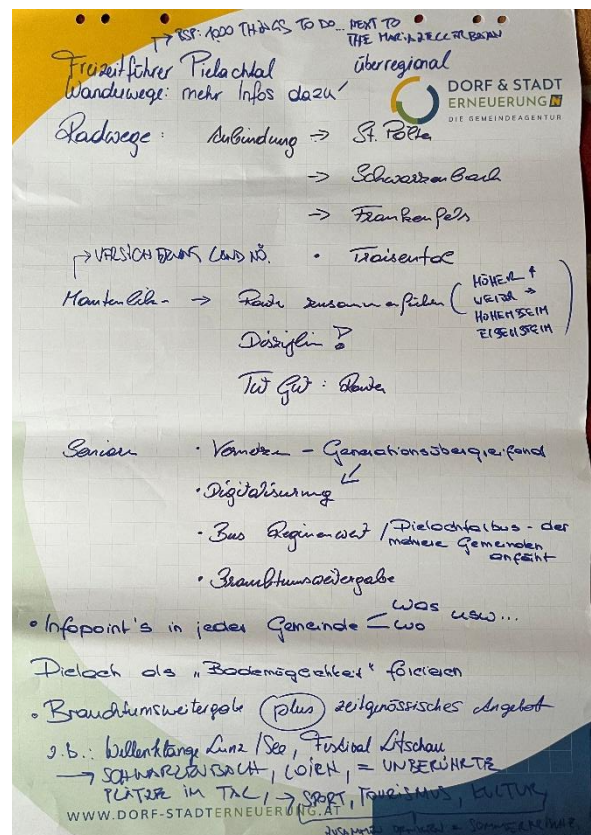 → BSP: 1000 THINGS TO DO... NEXT TO
THE MARIAZELLERBAHN
Freizeitführer Pielachtal überregional
Wanderwege: mehr Infos dazu!
DORF & STADT
ERNEUERUNG
DIE GEMEINDEAGENTUR
Radwege: Anbindung → St. Pölten
→ Schwarzenbach
→ Frankenfels
• Traisental
→ VERSICHERUNG LAND NÖ.
→ Route zusammenführen (HÖHER ↑
WEITER →
HOHENSTEIN
EISENSTEIN)
Disziplin!
Senioren • Vernetzen – Generationsübergreifend
• Digitalisierung
• Bus Regionenweit / Pielachtalbus - der
mehrere Gemeinden
anfährt
• Brauchtumsweitergabe
• Infopoint's in jeder Gemeinde - was usw...
wo
Pielach als „Bademöglichkeit" forcieren
• Brauchtumsweitergabe (plus) zeitgenössisches Angebot
z.b.: Wellenklänge Lunz/See, Festival Litschau
→ SCHWARZENBACH, LOICH, = UNBERÜHRTE
PLÄTZE IM TAL, → SPORT, TOURISMUS, KULTUR
WWW.DORF-STADTERNEUERUNG.AT